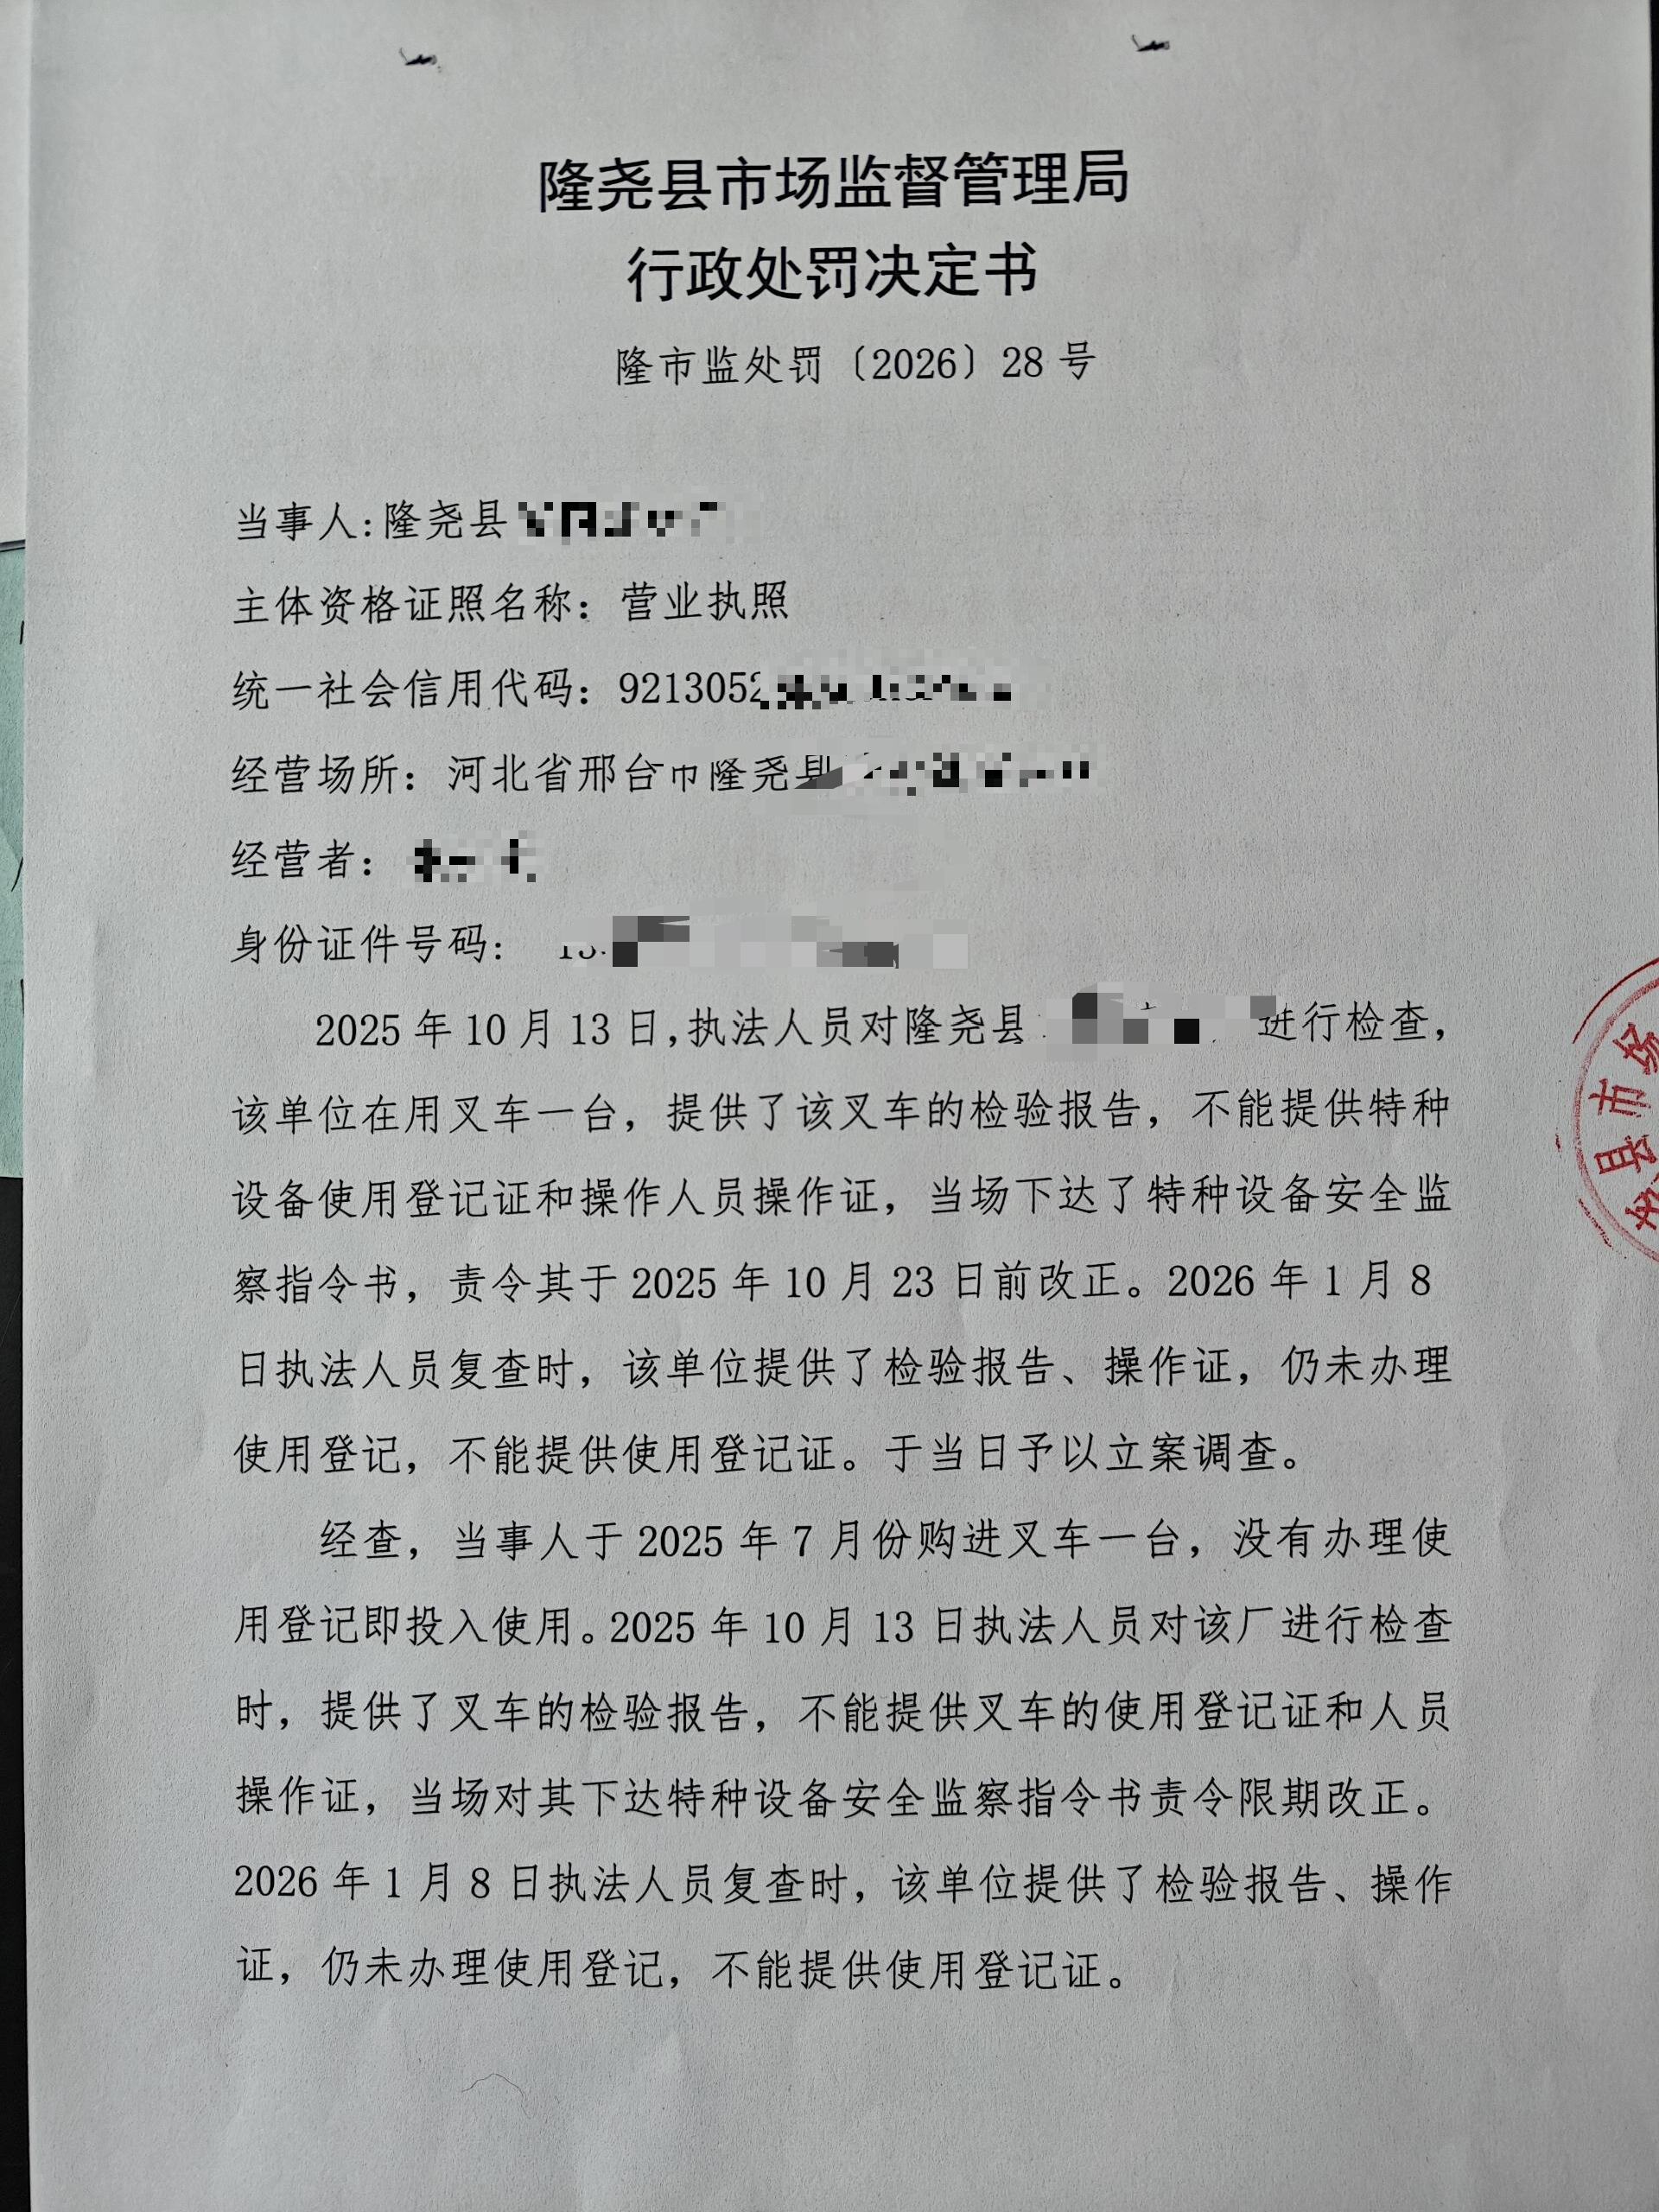 隆尧县市场监督管理局
行政处罚决定书
隆市监处罚〔2026〕28 号
当事人:隆尧县
主体资格证照名称：营业执照
统一社会信用代码：9213052
经营场所：河北省邢台市隆尧县
经营者：
身份证件号码：
2025 年 10 月 13 日,执法人员对隆尧县 进行检查，
该单位在用叉车一台，提供了该叉车的检验报告，不能提供特种
设备使用登记证和操作人员操作证，当场下达了特种设备安全监
察指令书，责令其于 2025 年 10 月 23 日前改正。2026 年 1 月 8
日执法人员复查时，该单位提供了检验报告、操作证，仍未办理
使用登记，不能提供使用登记证。于当日予以立案调查。
经查，当事人于 2025 年 7 月份购进叉车一台，没有办理使
用登记即投入使用。2025 年 10 月 13 日执法人员对该厂进行检查
时，提供了叉车的检验报告，不能提供叉车的使用登记证和人员
操作证，当场对其下达特种设备安全监察指令书责令限期改正。
2026 年 1 月 8 日执法人员复查时，该单位提供了检验报告、操作
证，仍未办理使用登记，不能提供使用登记证。
县市场